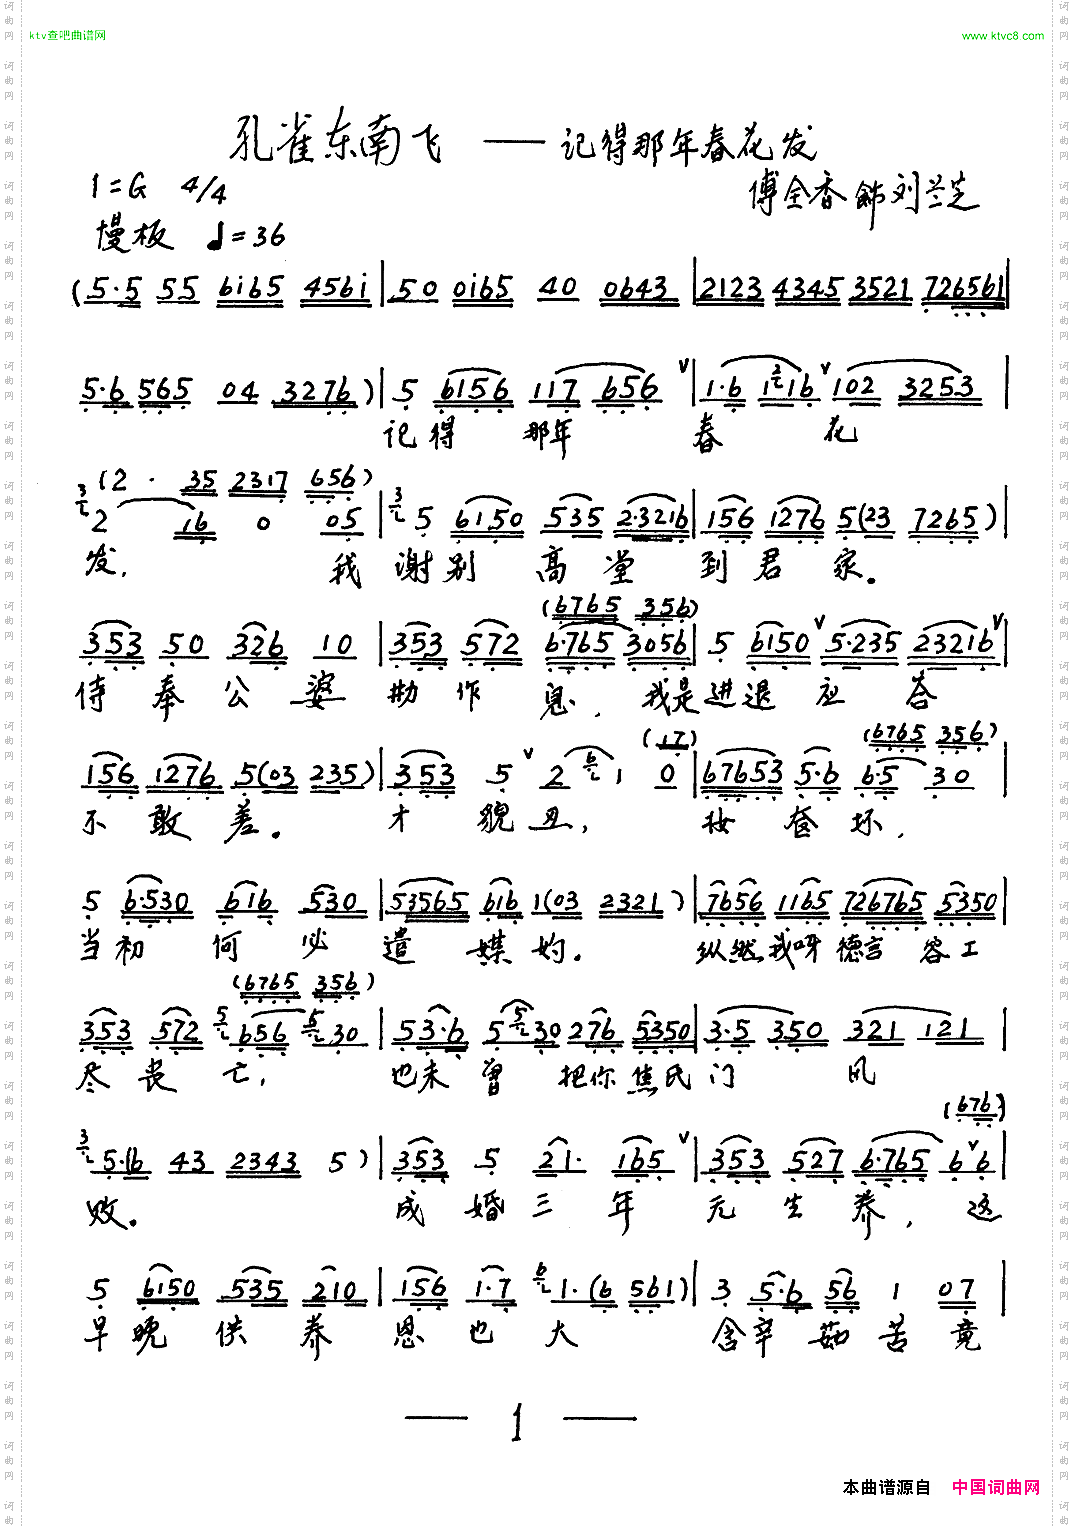 ktv查吧曲谱网
www.ktvc8.com
孔雀东南飞 —— 记得那年春花发
1=G 4/4
傅全香饰刘兰芝
慢板 ♩=36
(5·5 55 6i65 456i | 50 0i65 40 0643 | 2123 4345 3521 726561 |
5·6 565 04 3276) | 5 6156 117 656 ∨ | 1·6 1 16 ∨ 102 3253 |
记得 那年 春 花
(2· 35 2317 656)
2 16 0 05 | 5 6150 535 2·3216 | 156 1276 5(23 7265) |
发, 我 谢别 高堂 到君 家。
(6765 356)
353 50 326 10 | 353 572 6·765 3056 | 5 6150 ∨ 5·235 23216 ∨
侍奉公婆 勤作息, 我是进退应答
(17) (6765 356)
156 1276 5(03 235) | 353 5 ∨ 2 1 0 | 67653 5·6 6·5 30 |
不敢差。 才貌丑, 妆奁坏,
5 6·530 616 530 | 53565 616 1(03 2321) | 7656 1165 726765 5350 |
当初何必 遣媒妁。 纵然我呀德言容工
(6765 356)
353 572 656 30 | 53·6 5 30 276 5350 | 3·5 350 321 121 |
尽丧亡, 也未曾 把你焦氏门风
(676)
5·(6 43 2343 5) | 353 5 21· 165 ∨ | 353 527 6·765 6 ∨ 6 |
败。 成婚三年 无生养, 这
5 6150 535 210 | 156 1·7 1·(6 561) | 3 5·6 56 1 07 |
早晚供养 恩也大 含辛茹苦竟
— 1 —
本曲谱源自 中国词曲网